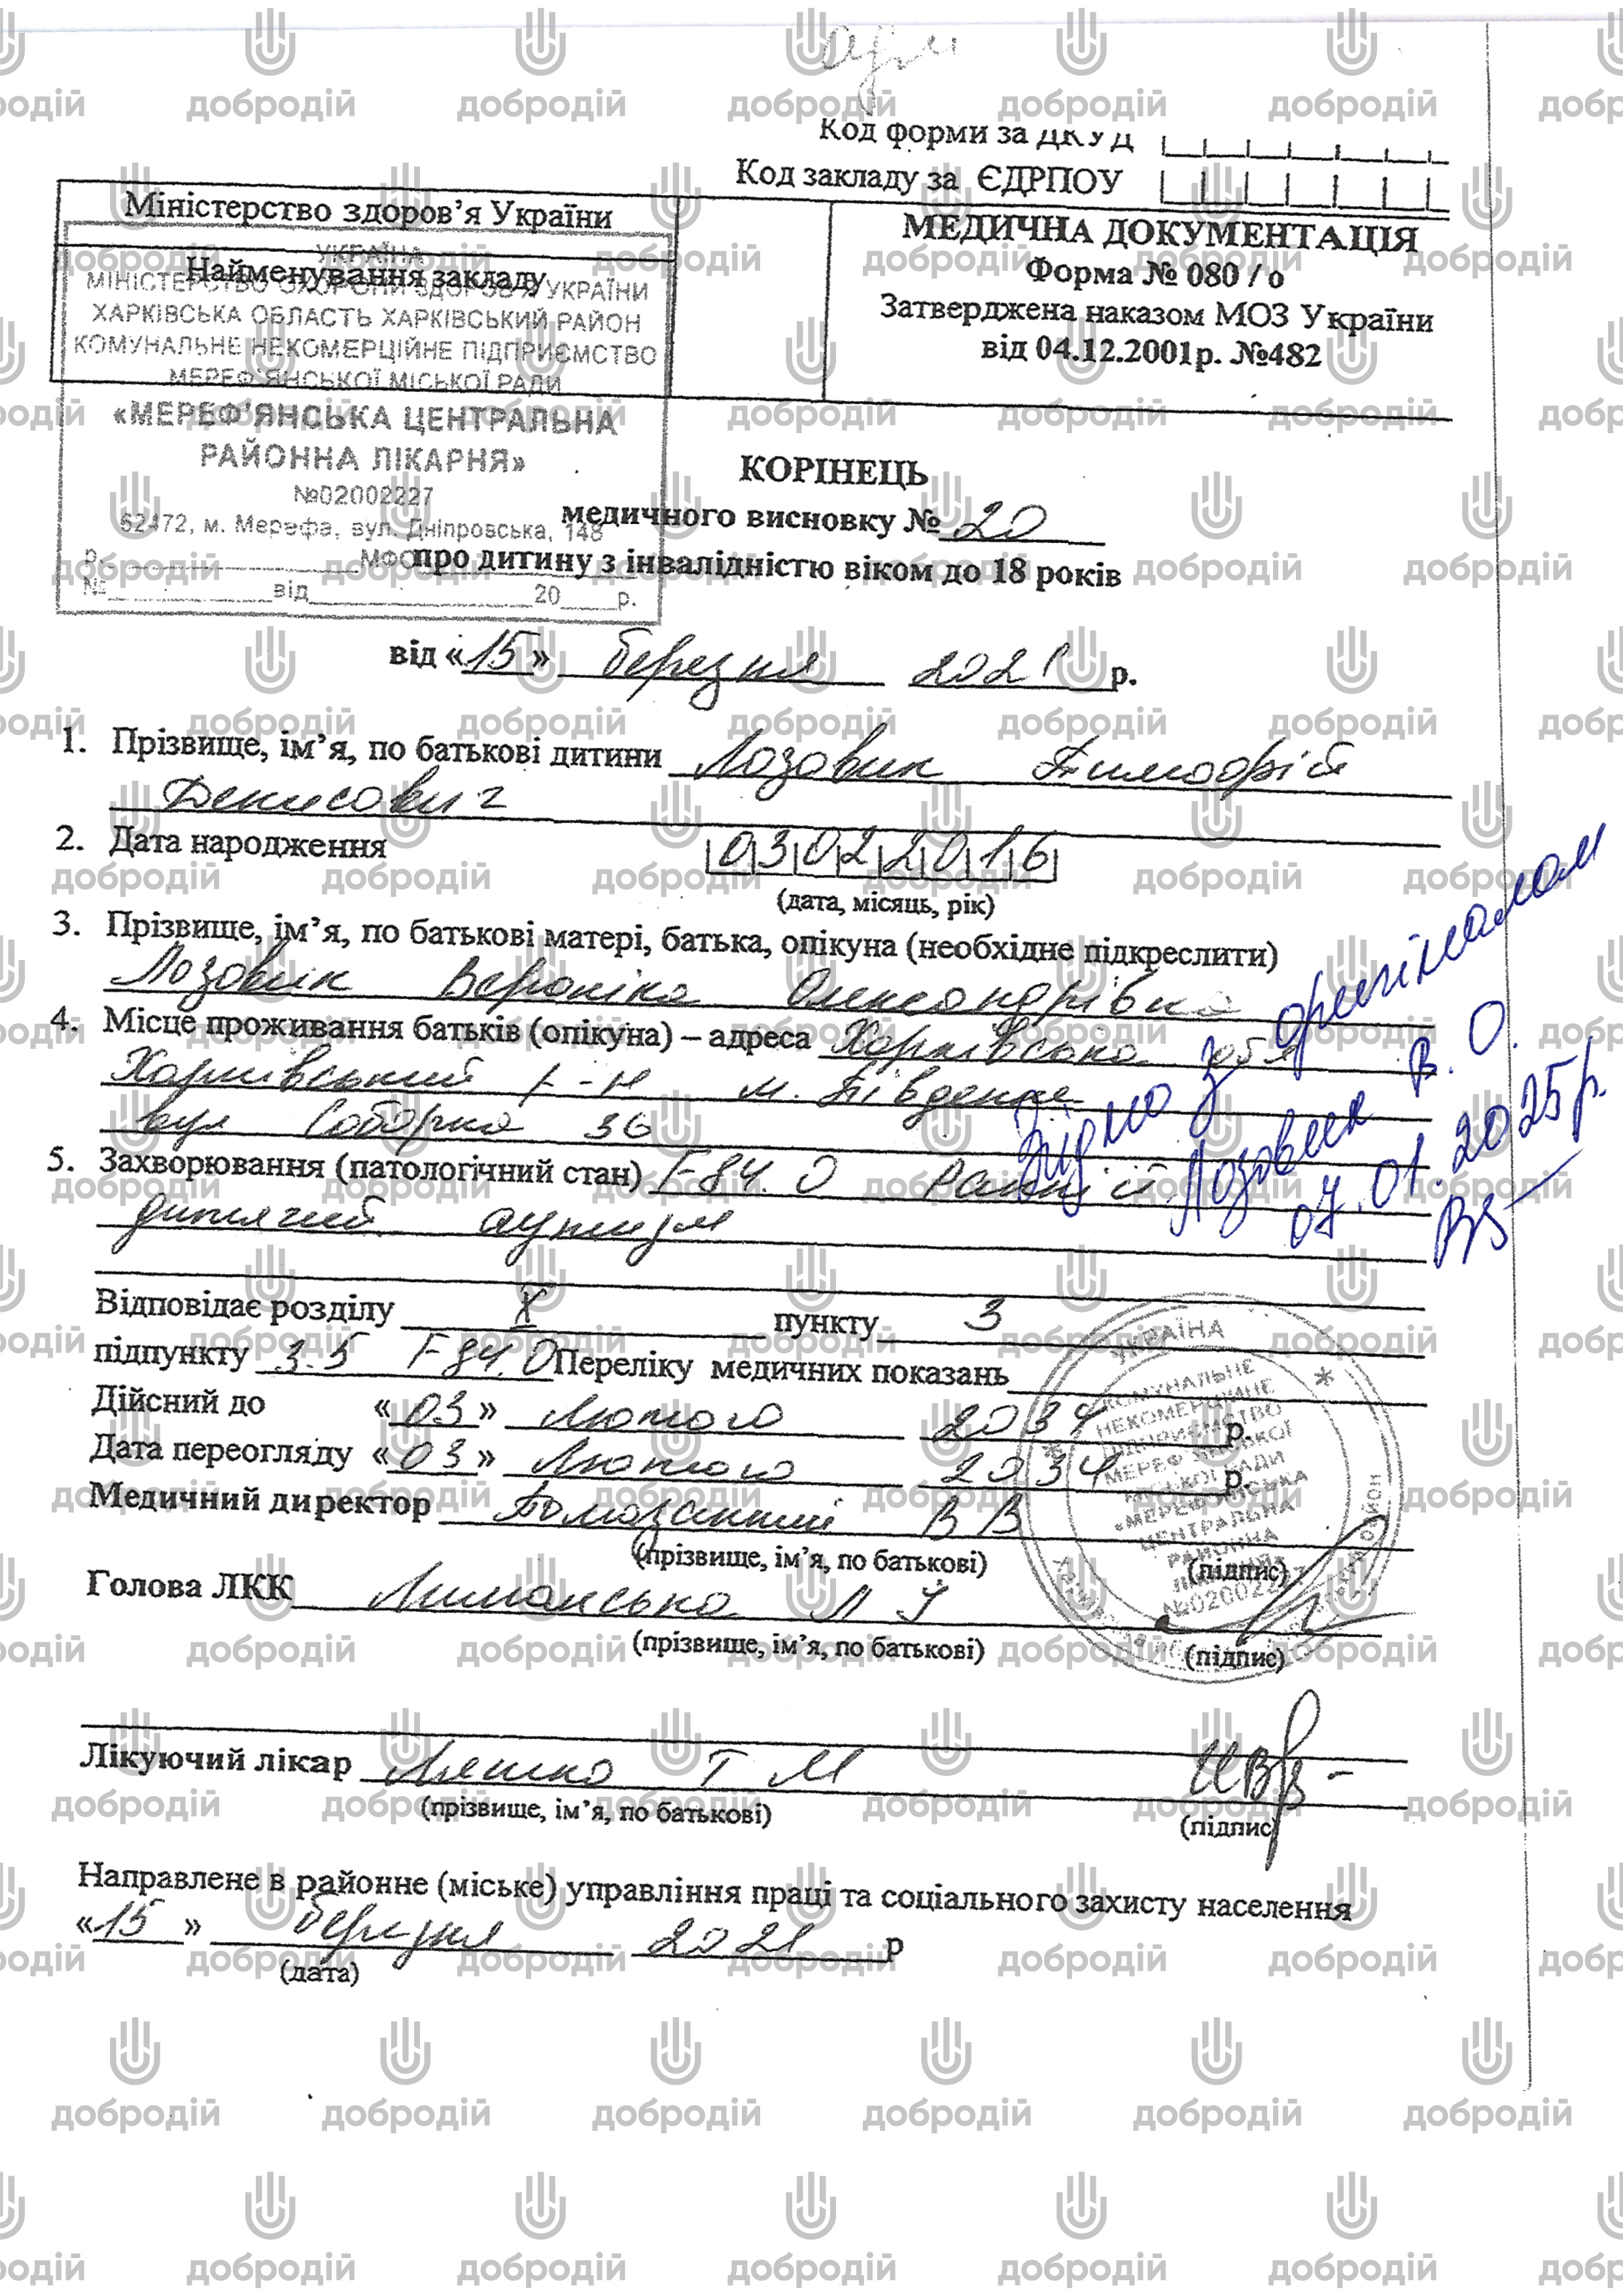 Код форми за ДКУД
Код закладу за ЄДРПОУ
Міністерство здоров’я України
Найменування закладу
МЕДИЧНА ДОКУМЕНТАЦІЯ
Форма № 080 / о
Затверджена наказом МОЗ України
від 04.12.2001р. №482
УКРАЇНА
МІНІСТЕРСТВО ОХОРОНИ ЗДОРОВ'Я УКРАЇНИ
ХАРКІВСЬКА ОБЛАСТЬ ХАРКІВСЬКИЙ РАЙОН
КОМУНАЛЬНЕ НЕКОМЕРЦІЙНЕ ПІДПРИЄМСТВО
МЕРЕФ'ЯНСЬКОЇ МІСЬКОЇ РАДИ
«МЕРЕФ'ЯНСЬКА ЦЕНТРАЛЬНА
РАЙОННА ЛІКАРНЯ»
№02002227
62472, м. Мерефа, вул. Дніпровська, 148
р. МФО
№ від 20 р.
КОРІНЕЦЬ
медичного висновку № 20
про дитину з інвалідністю віком до 18 років
від «15» березня 2021 р.
1. Прізвище, ім’я, по батькові дитини Лозовик Тимофій
Денисович
2. Дата народження 03022016
(дата, місяць, рік)
3. Прізвище, ім’я, по батькові матері, батька, опікуна (необхідне підкреслити)
Лозовик Вероніка Олександрівна
4. Місце проживання батьків (опікуна) – адреса Харківська обл
Харківський р-н м. Південне
вул Соборна 36
5. Захворювання (патологічний стан) F84.0 Ранній
дитячий аутизм
Згідно з оригіналом
Лозовик В. О.
07.01.2025р.
Відповідає розділу X пункту 3
підпункту 3.5 F 84.0 Переліку медичних показань
Дійсний до «03» лютого 2034 р.
Дата переогляду «03» лютого 2034 р.
Медичний директор В В
(прізвище, ім’я, по батькові) (підпис)
Голова ЛКК Лиманська Л
(прізвище, ім’я, по батькові) (підпис)
УКРАЇНА
КОМУНАЛЬНЕ
НЕКОМЕРЦІЙНЕ
ПІДПРИЄМСТВО
МЕРЕФ'ЯНСЬКОЇ
МІСЬКОЇ РАДИ
«МЕРЕФ'ЯНСЬКА
ЦЕНТРАЛЬНА
РАЙОННА
ЛІКАРНЯ»
№02002227
Лікуючий лікар Ляшко Т М
(прізвище, ім’я, по батькові) (підпис)
Направлене в районне (міське) управління праці та соціального захисту населення
«15» березня 2021 р
(дата)
добродій